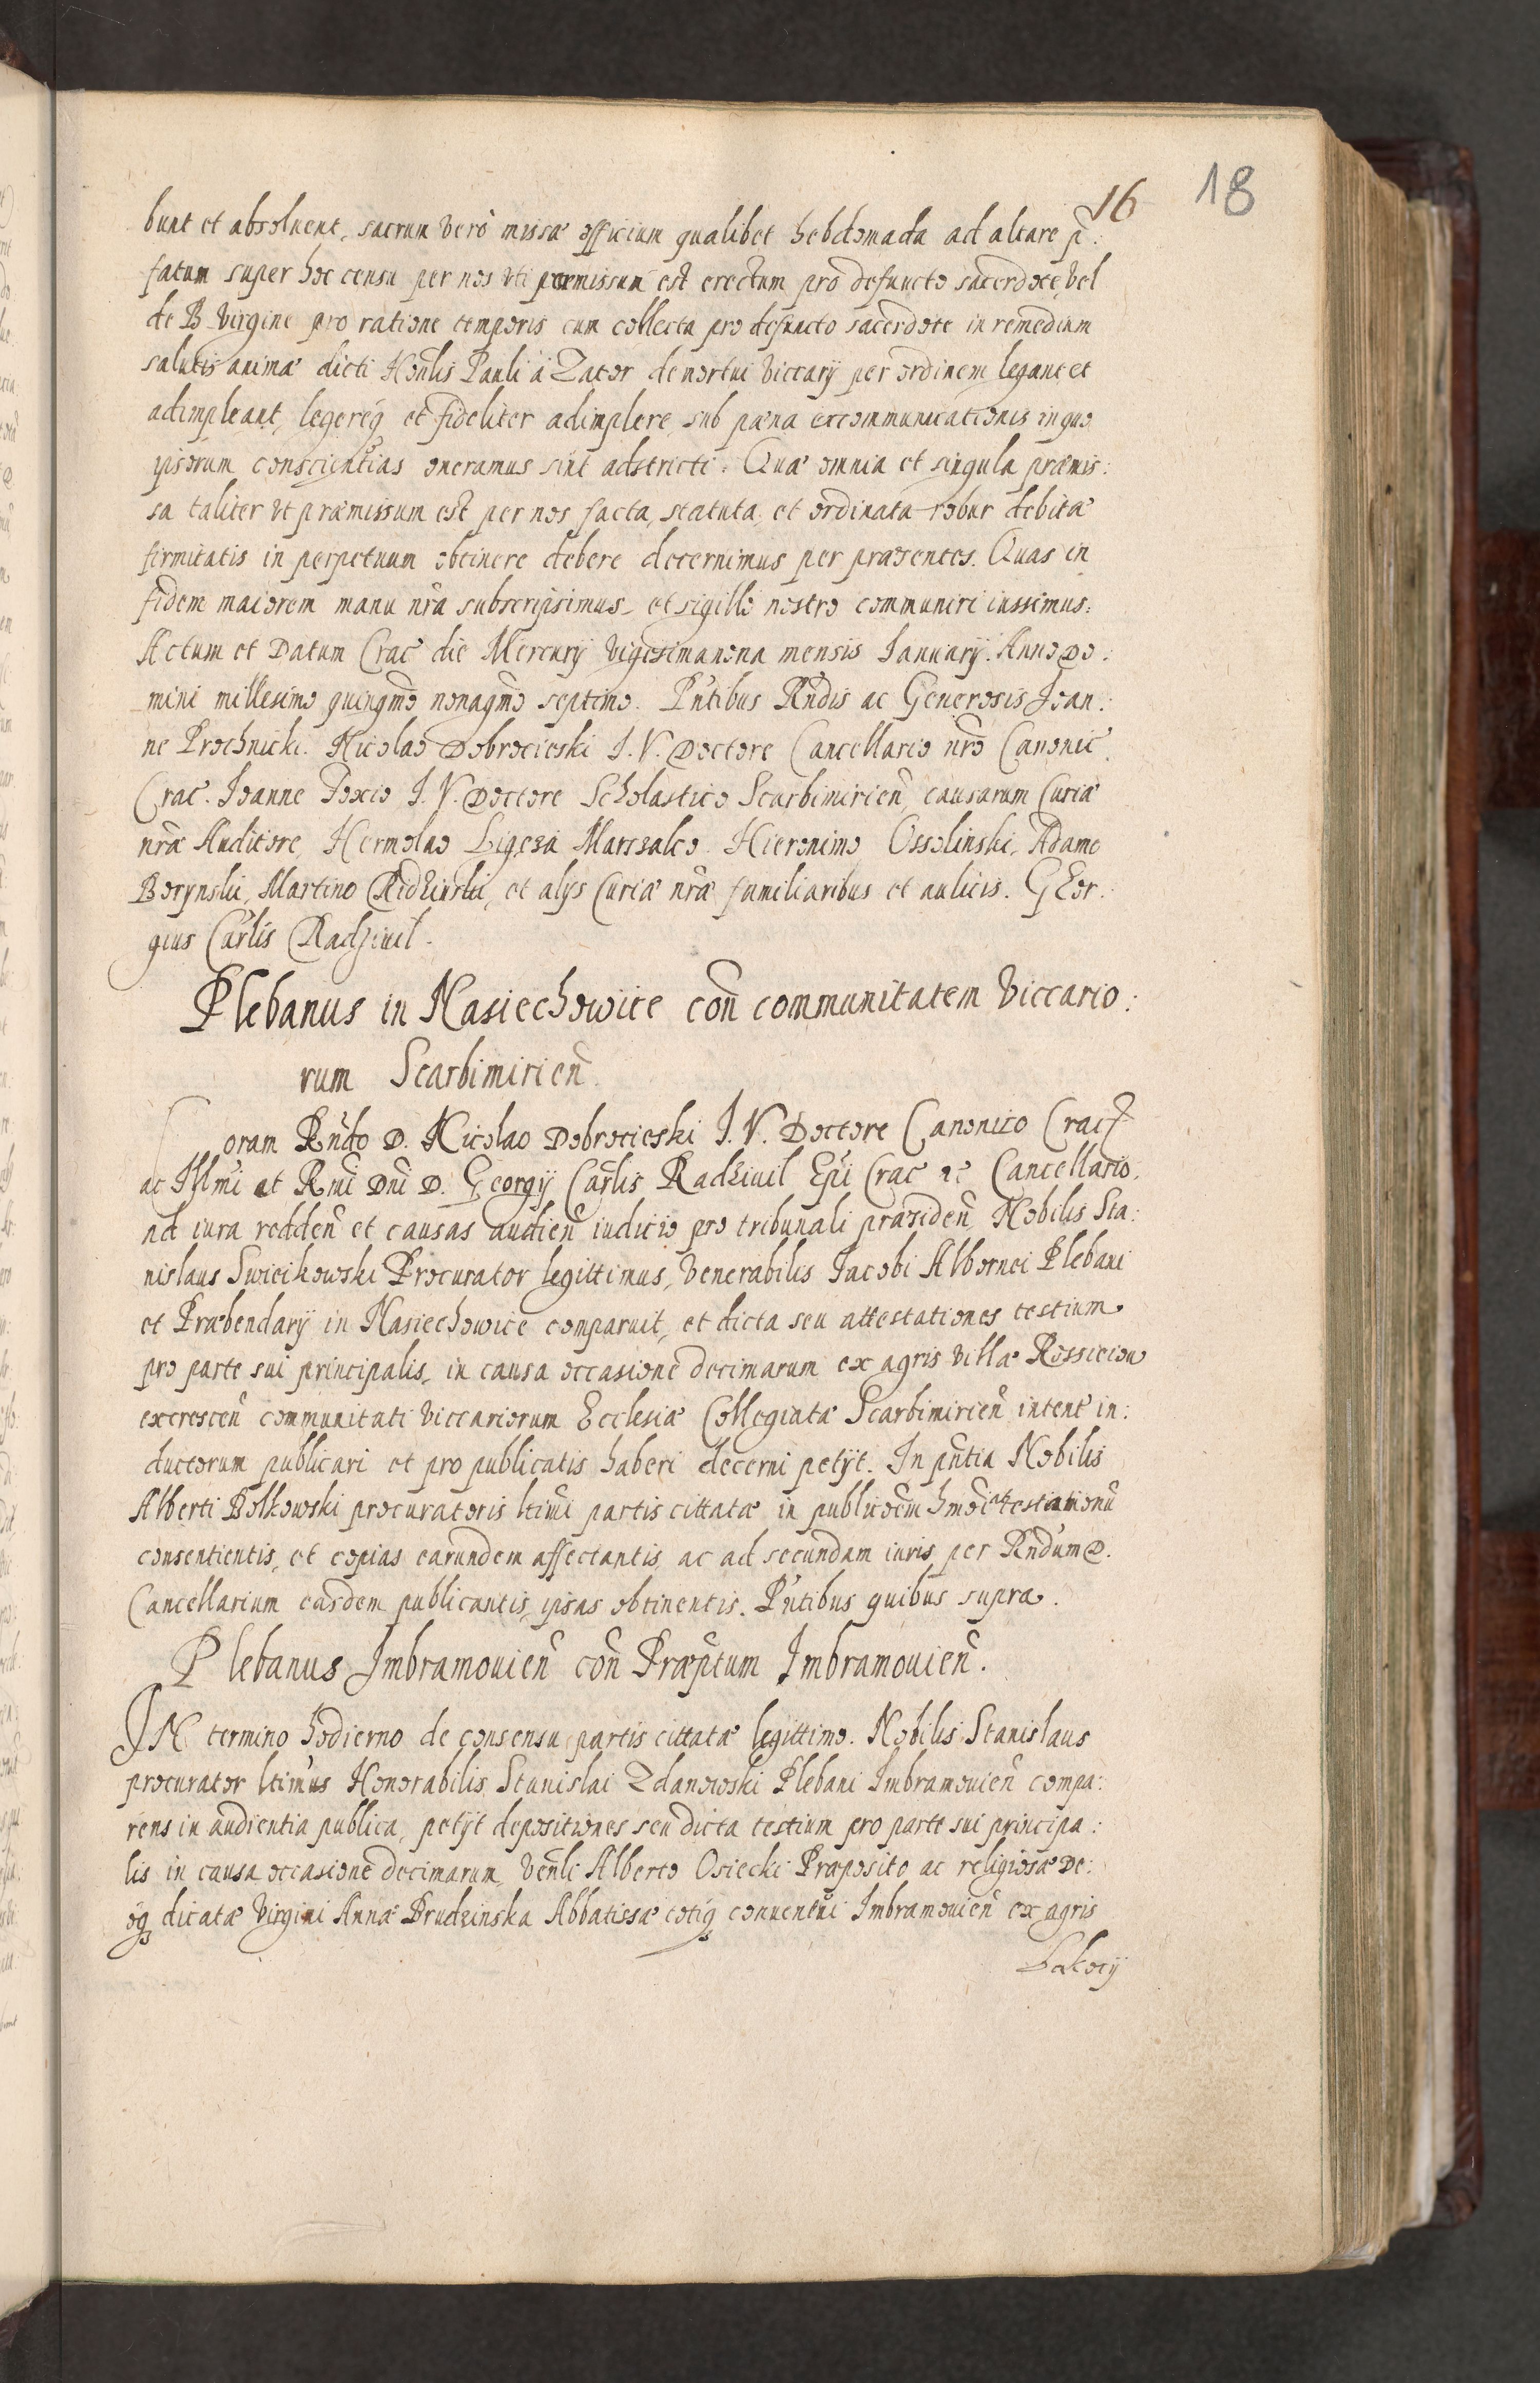 16
18
bunt et absoluent, sacrum verò missæ officium qualibet hebdomada ad altare p̄:
fatum super hoc censu per nos vti permissum est erectum pro defuncto sacerdote, vel
de B. Virgine pro ratione temporis cum collecta pro defuncto sacerdote in remedium
salutis animæ dicti Honlis Pauli à Zator demortui Viccarij per ordinem legant et
adimpleant, legereq́ et fideliter adimplere, sub pæna excommunicationis in quo
ipsorum conscientias oneramus sint adstricti. Quæ omnia et singula præmis:
sa taliter vt præmissum est per nos facta, statuta, et ordinata robur debitæ
firmitatis in perpetuum obtinere debere decernimus per præsentes. Quas in
fidem maiorem manu nrã subscripsimus, et sigillo nostro communiri iussimus.
Actum et Datum Crac̃ die Mercurij vigesimanona mensis Ianuarij. Anno Do:
mini millesimo quingmõ nonagmõ septimo. Pñtibus Rñdis ac Generosis Joan:
ne Prochnicki. Nicolao Dobrocieski I. V. Doctore Cancellario nrõ Canonic̃
Crac. Ioanne Foxio I. V. Doctore Scholastico Scarbimirien̄, causarum Curiæ
nrãe Auditore, Hermolao Ligeza Marszalco. Hieronimo Ossolinski, Adamo
Borynski, Martino Rudzinski, et alijs Curiæ nrãe familiaribus et aulicis. GEor:
gius Carlis Radziuil.
Plebanus in Nasiechowice con̄ communitatem Viccario:
rum Scarbimirien̄.
Coram Rñdo D. Nicolao Dobrocieski I. V. Doctore Canonico Crac̃
ac Illmi et Rmi Dni D. Georgij Carlis Radziuil Epi Crac̃ &c Cancellario,
ad iura redden̄ et causas audien̄ iudicio pro tribunali præsiden̄, Nobilis Sta:
nislaus Swiecikowski Procurator legittimus, Venerabilis Jacobi Albornei Plebani
et Præbendarij in Nasiechowice comparuit, et dicta seu attestationes testium
pro parte sui principalis, in causa occasione decimarum ex agris villæ Rossieiow
excrescen̄ communitati viccariorum Ecclesiæ Collegiatæ Scarbimirien̄ intent̄ in:
ductorum publicari et pro publicatis haberi decerni petijt. In pn̄tia Nobilis
Alberti Bolkowski procuratoris ltimi partis cittatæ in publicõem hmõi attestationũ
consentientis, et copias earundem affectantis, ac ad secundam iuris per Rñdum D.
Cancellarium easdem publicantis, ipsas obtinentis. Pñtibus quibus supra.
Plebanus Imbramouien̄ con̄ Præptum Imbramouien̄.
IN termino hodierno de consensu partis cittatæ legittimo. Nobilis Stanislaus
procurator ltimus Honorabilis Stanislai Zdanowski Plebani Imbramouien̄ compa:
rens in audientia publica, petijt depositiones seu dicta testium pro parte sui principa:
lis in causa occasione decimarum, Venli Alberto Osiecki Præposito ac religiosæ De:
oq́ dicatæ Virgini Annæ Prudzinska Abbatissæ totiq́ conuentui Imbramouien̄ ex agris